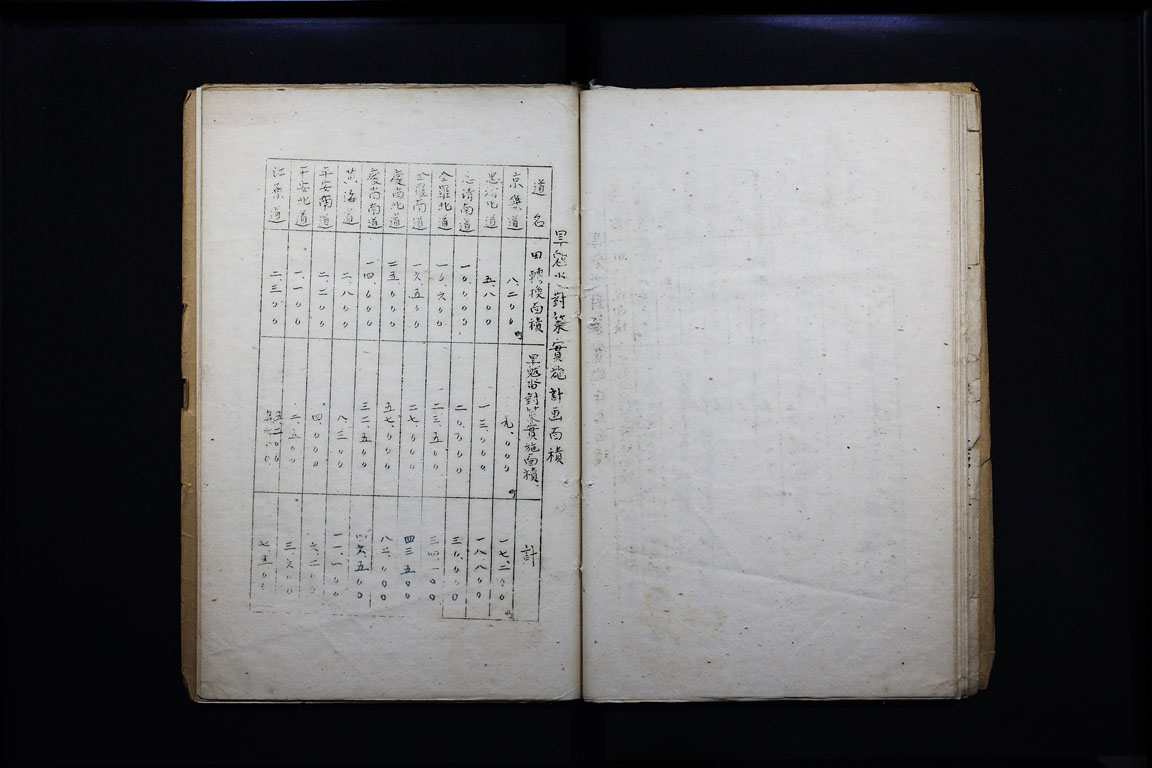 旱魃水對策實施計画面積
道名 田轉換面積 旱魃水対策實施面積 計
京畿道 八二〇〇町 九、〇〇〇町 一七、二〇〇町
忠清北道 五、八〇〇 一三、〇〇〇 一八八〇〇
忠清南道 一〇、〇〇〇 二〇、〇〇〇 三〇、〇〇〇
全羅北道 一〇、六〇〇 二三、五〇〇 三四、一〇〇
全羅南道 一六五〇〇 二七、〇〇〇 四三五〇〇
慶尚北道 二五、〇〇〇 五七、〇〇〇 八二、〇〇〇
慶尚南道 一四、〇〇〇 三二、五〇〇 四六五〇〇
黄海道 二、八〇〇 八三〇〇 一一、一〇〇
平安南道 二、二〇〇 四、〇〇〇 六、二〇〇
平安北道 一、一〇〇 二、五〇〇 三、六〇〇
江原道 二三〇〇 五二〇〇 七、五〇〇